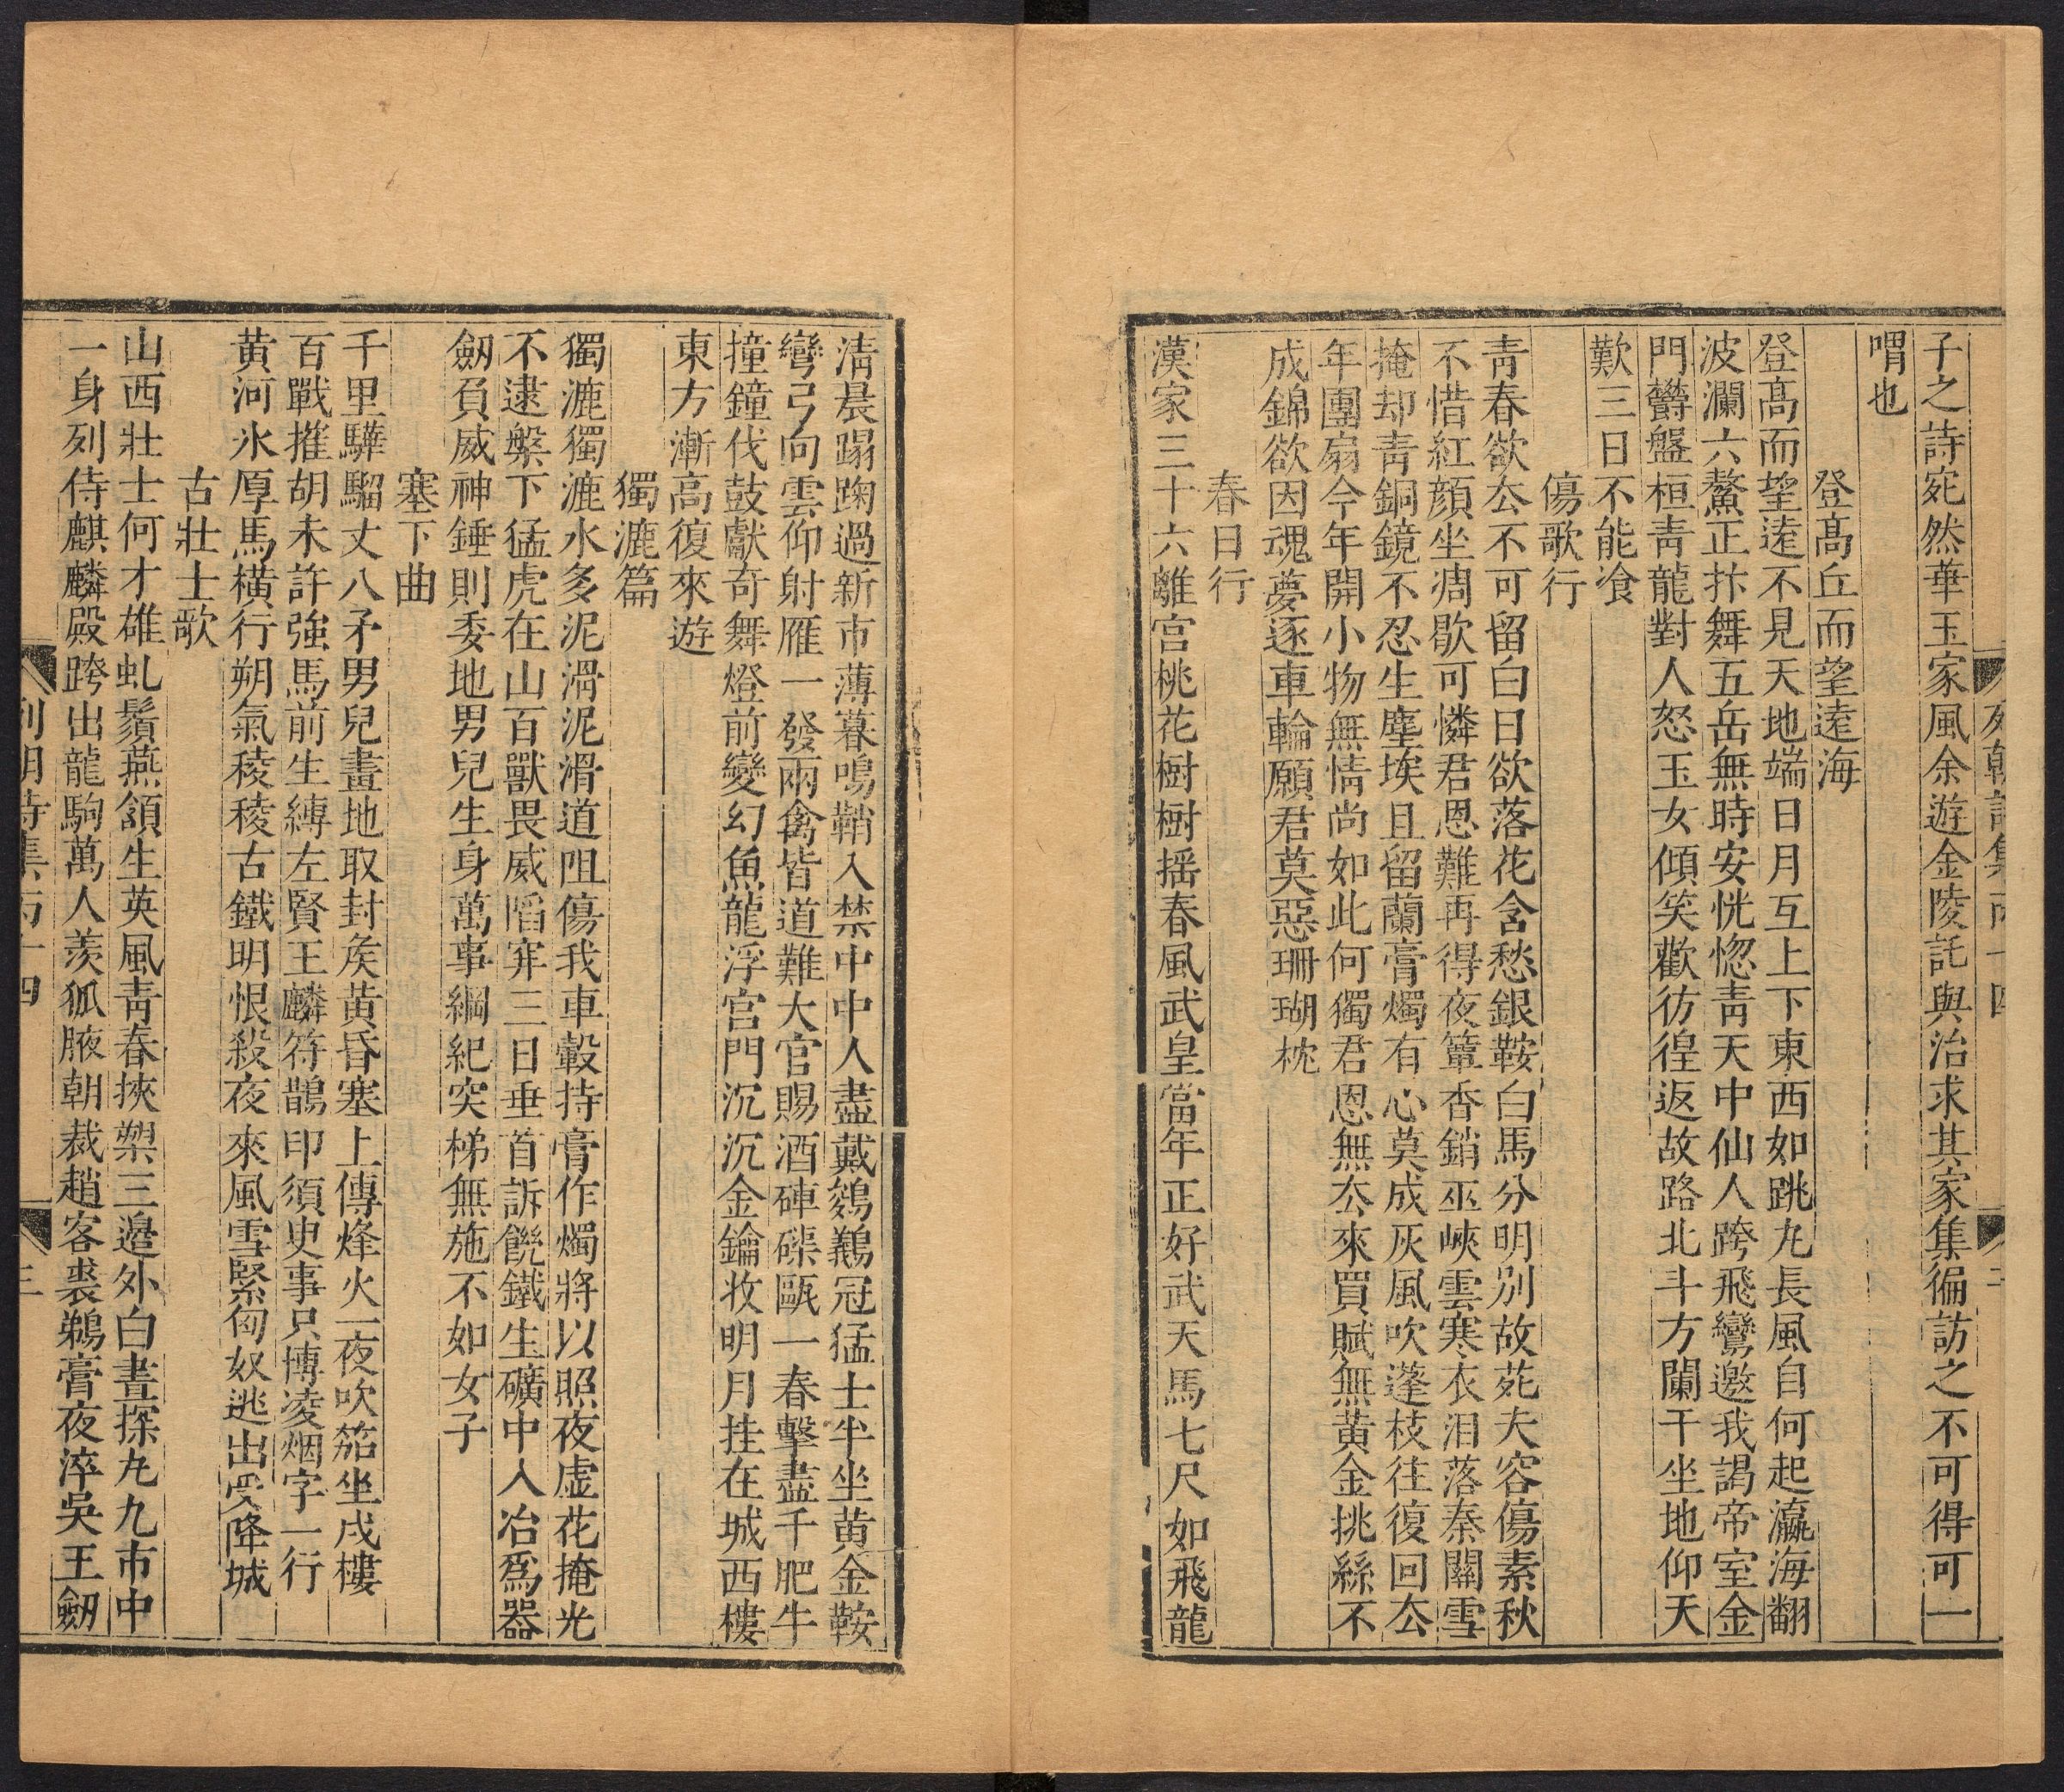 子之詩宛然華玉家風余遊金陵託與治求其家集徧訪之不可得可一
喟也
登高丘而望遠海
登高而望遠不見天地端日月互上下東西如跳丸長風自何起瀛海翻
波瀾六鰲正抃舞五岳無時安恍惚青天中仙人跨飛鸞邀我謁帝室金
門鬱盤桓青龍對人怒玉女傾笑歡彷徨返故路北斗方闌干坐地仰天
歎三日不能飡
傷歌行
青春欲厺不可留白日欲落花含愁銀鞍白馬分明別故苑夫容傷素秋
不惜紅顔坐凋歇可憐君恩難再得夜篝香銷巫峽雲寒衣泪落秦關雪
掩却青銅鏡不忍生塵埃且留蘭膏燭有心莫成灰風吹蓬枝往復回厺
年團扇今年開小物無情尚如此何獨君恩無厺來買賦無黄金挑絲不
成錦欲因魂夢逐車輪願君莫惡珊瑚枕
春日行
漢家三十六離宮桃花樹樹揺春風武皇當年正好武天馬七尺如飛龍
清晨蹋踘過新市薄暮鳴鞘入禁中中人盡戴鵕鸃冠猛士半坐黄金鞍
彎弓向雲仰射雁一發兩禽皆道難大官賜酒硨磲甌一春擊盡千肥牛
撞鐘伐鼓獻奇舞燈前變幻魚龍浮宮門沉沉金鑰收明月挂在城西樓
東方漸高復來遊
獨漉篇
獨漉獨漉水多泥滑泥滑道阻傷我車轂持膏作燭將以照夜虛花掩光
不逮槃下猛虎在山百獸畏威䧟穽三日垂首訴饑鐵生礦中入冶爲器
劒負威神錘則委地男兒生身萬事綱紀突梯無施不如女子
塞下曲
千里驊騮丈八矛男兒畫地取封矦黄昏塞上傳烽火一夜吹笳坐戍樓
百戰摧胡未許強馬前生縛左賢王麟符鵲印須史事只博凌烟字一行
黄河氷厚馬橫行朔氣稜稜古鐵明恨殺夜來風雪緊匈奴逃出受降城
古壯士歌
山西壯士何才雄虬鬚燕頷生英風青春挾槊三邉外白晝探丸九市中
一身列侍麒麟殿跨出龍駒萬人羨狐腋朝裁趙客裘鵜膏夜淬吳王劒